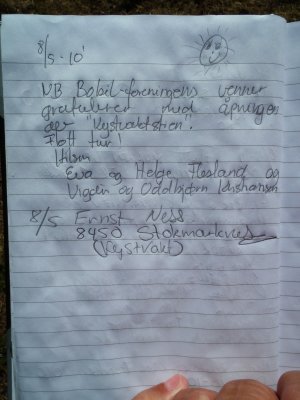 8/5 - 10'
NB Babil-foreningens venner
gratulerer med åpningen
av "Kystvaktstien".
Flott tur!
Hilsen
Eva og Helge Flesland og
og Oddbjørn Johansen
8/5 Ernst Ness
8450 Stokmarknes
(Kystvakt)